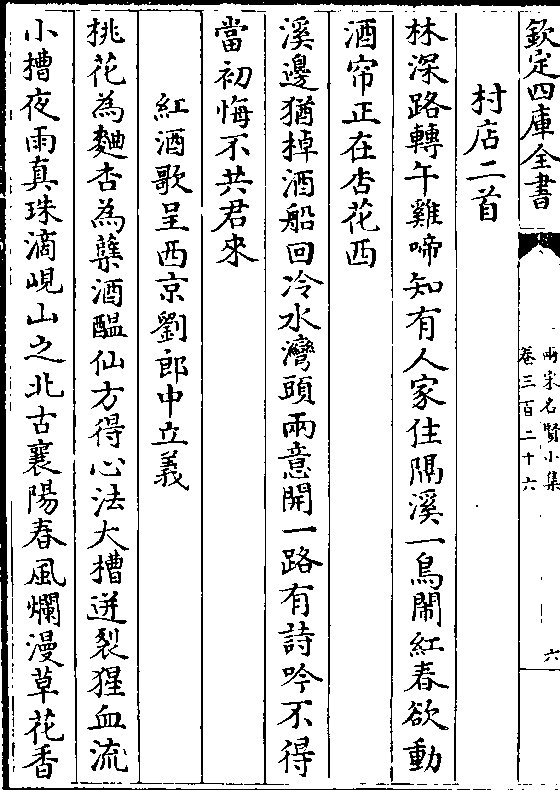 欽定四庫全書
兩宋名賢小集
卷三百二十六
六
村店二首
林深路轉午雞啼知有人家住隔溪一鳥鬧紅春欲動
酒帘正在杏花西
溪邊猶掉酒船回冷水灣頭兩意開一路有詩吟不得
當初悔不共君來
紅酒歌呈西京劉郎中立義
桃花為麯杏為蘖酒醖仙方得心法大槽迸裂猩血流
小槽夜雨真珠滴峴山之北古襄陽春風爛漫草花香